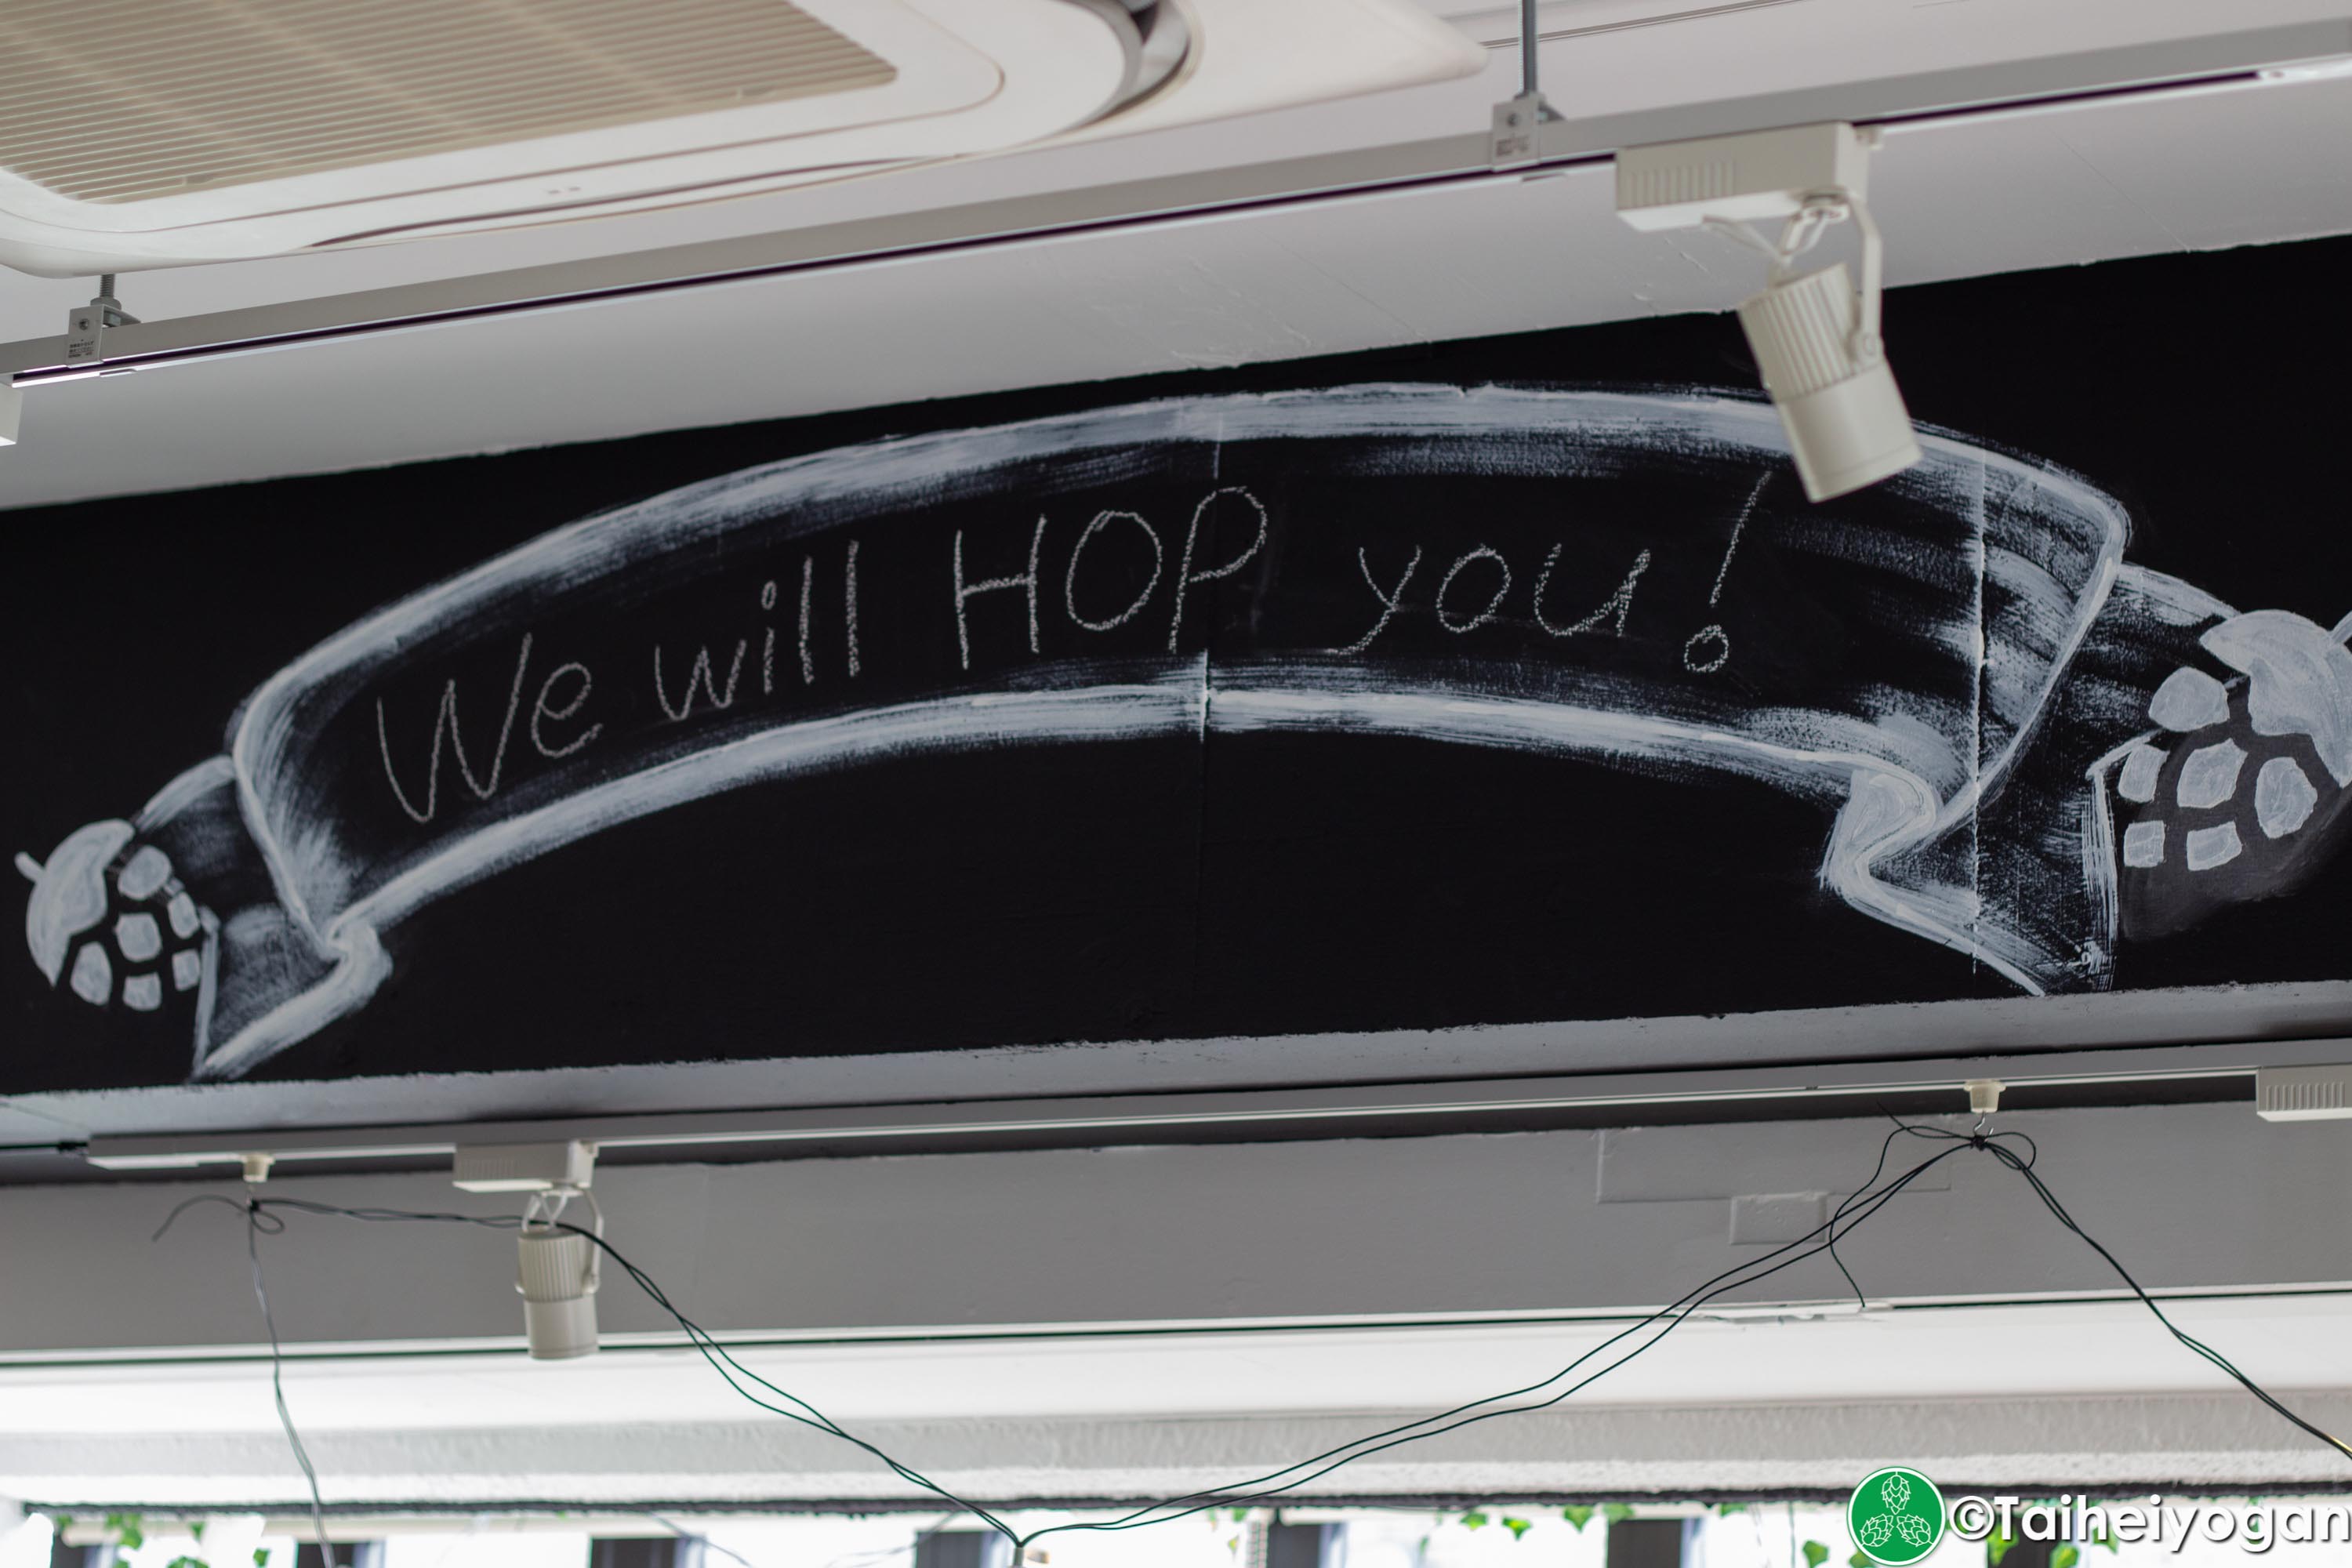 We will HOP you!
©Taiheiyogan